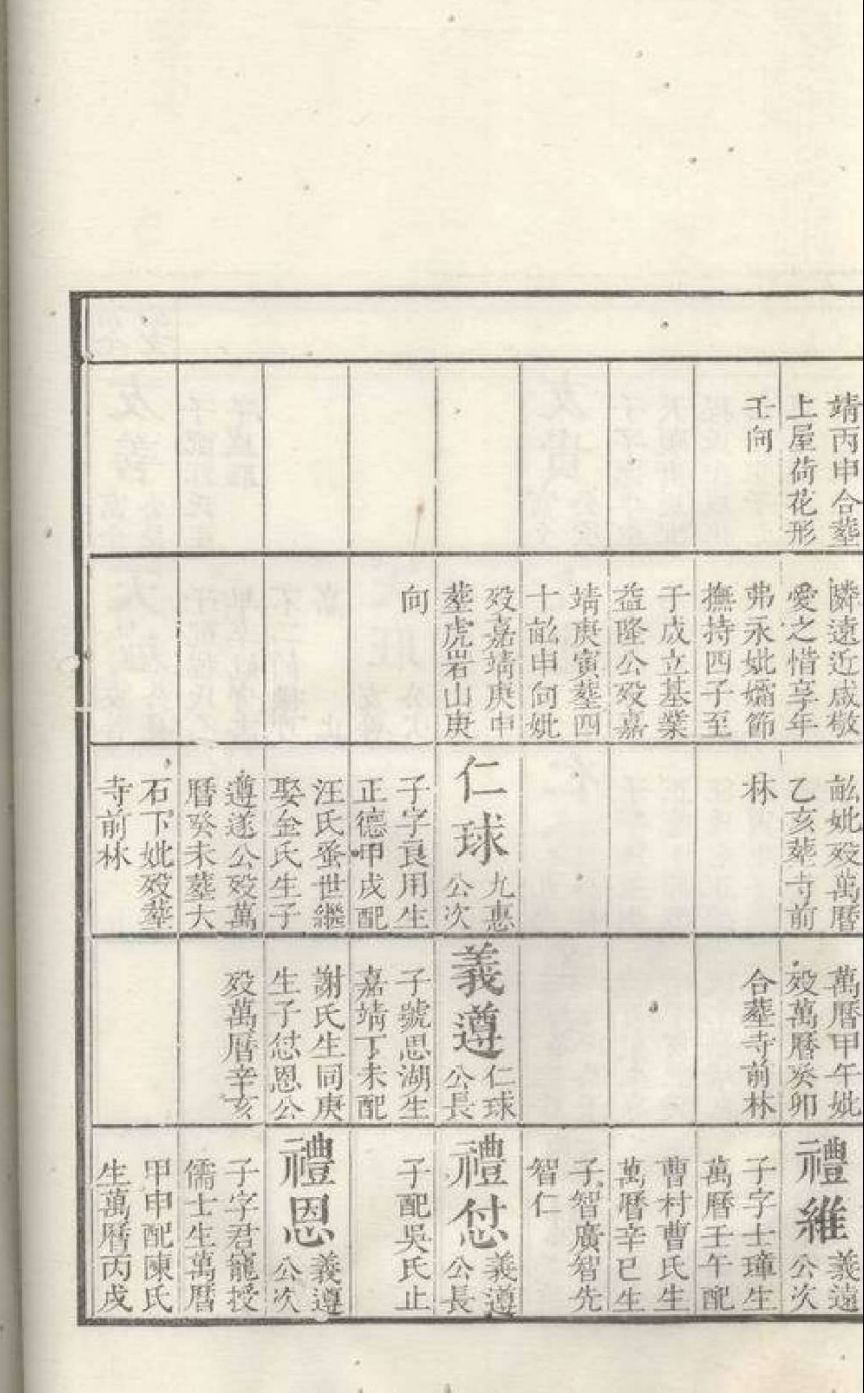 靖丙申合塟
上屋荷花形
壬向
隣遠近咸敬
愛之惜享年
弗永妣孀節
撫持四子至
于成立基業
益隆公歿嘉
靖庚寅塟四
十畝申向妣
歿嘉靖庚申
塟虎岩山庚
向
畝妣歿萬曆
乙亥塟寺前
林
仁球
九惠
公次
子字良用生
正德甲戌配
汪氏蚤世繼
娶金氏生子
遵遂公歿萬
曆癸未塟大
石下妣歿塟
寺前林
萬曆甲午妣
歿萬曆癸卯
合塟寺前林
義遵
仁球
公長
子號思湖生
嘉靖丁未配
謝氏生同庚
生子愆恩公
歿萬曆辛亥
禮維
義遠
公次
子字士璋生
萬曆壬午配
曹村曹氏生
萬曆辛巳生
子智廣智先
智仁
禮愆
義遵
公長
子配吳氏止
禮恩
義遵
公次
子字君寵授
儒士生萬曆
甲申配陳氏
生萬曆丙戌